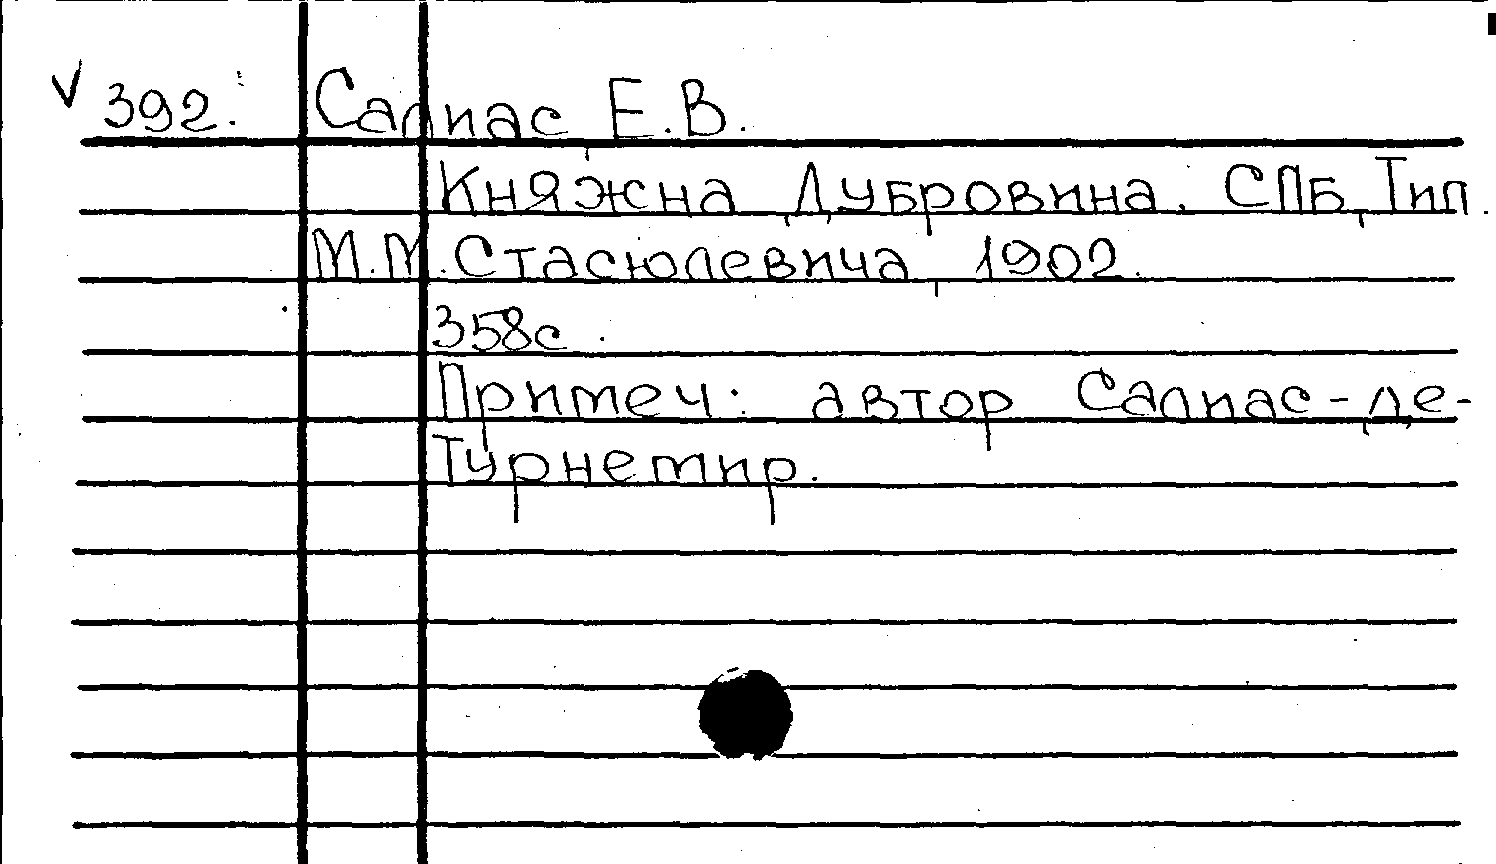 V 392. Салиас Е.В.
Княжна Дубровина. СПБ, Тип.
М.М.Стасюлевича, 1902.
358с.
Примеч: автор Салиас-де-
Турнемир.